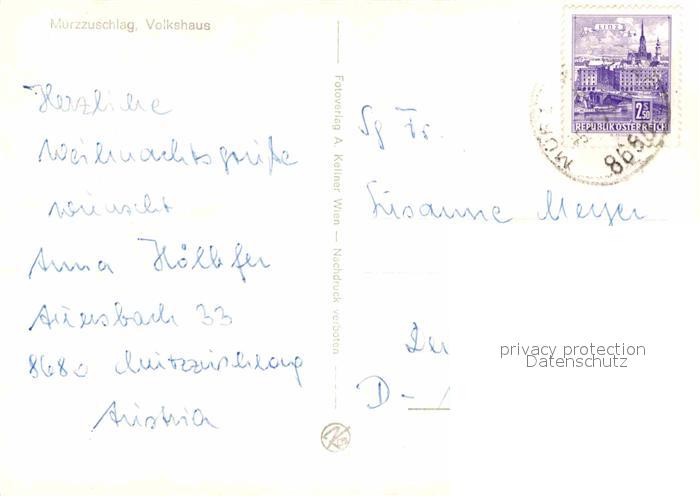 Mürzzuschlag, Volkshaus
Herzliche
Weihnachtsgrüße
wünscht
Anna Höllbfer
Auersbach 33
8680 Mürzzuschlag
Austria
Fotoverlag A. Kellner, Wien — Nachdruck verboten
LINZ
2S50
REPUBLIK ÖSTERREICH
8680
MÜR
Sg Fr.
Susanne Meyer
D-
privacy protection
Datenschutz